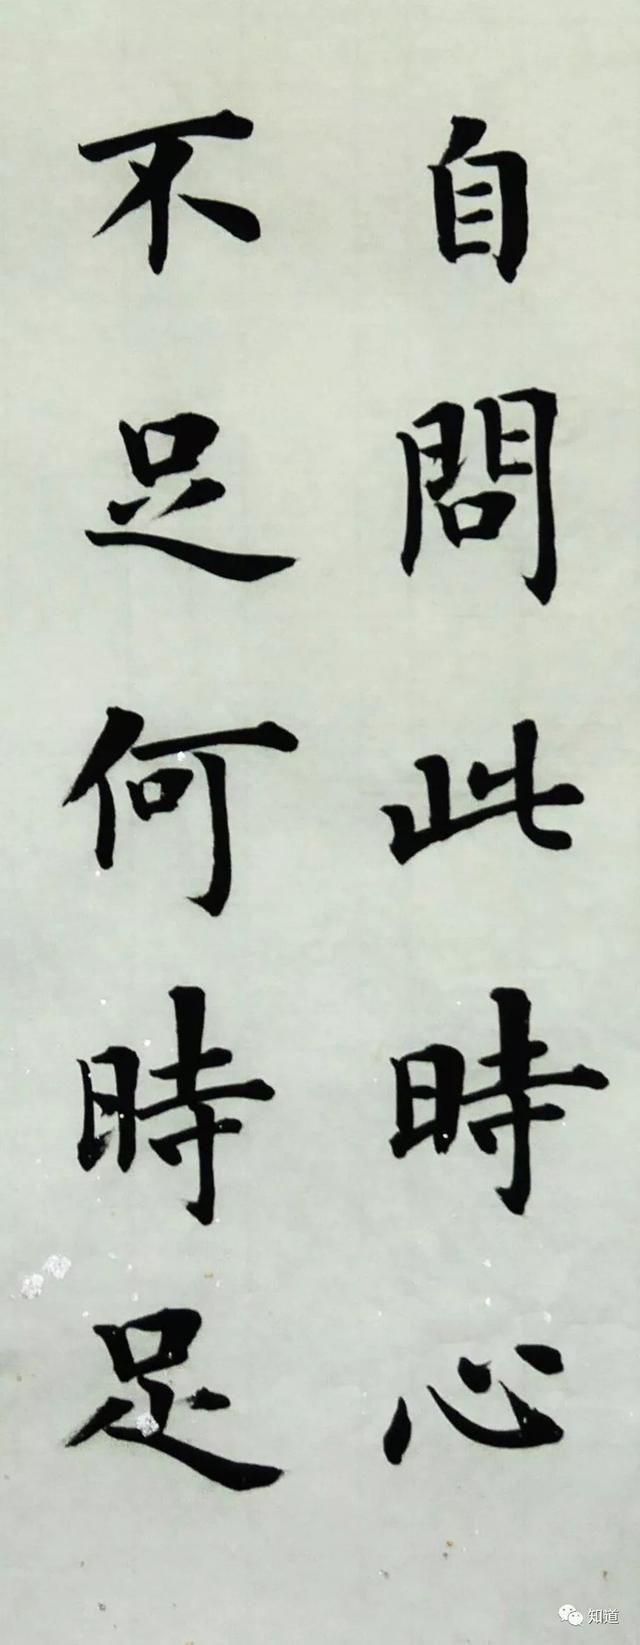 自問此時心
不足何時足
知道